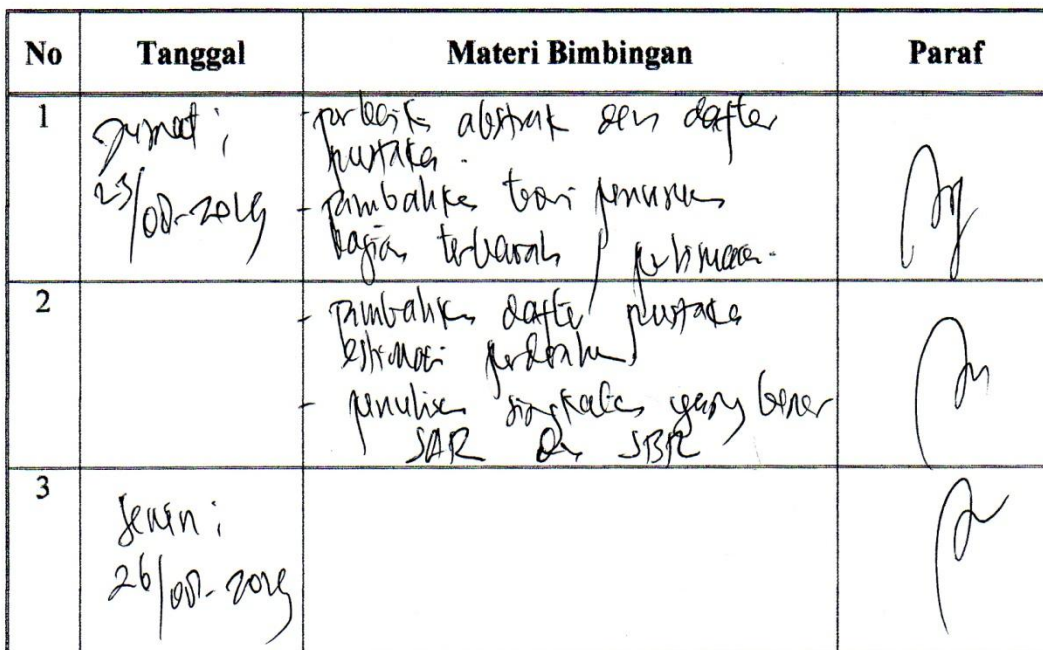 No Tanggal Materi Bimbingan Paraf
1
Jumat ;
23/08-2019
- perbaiki abstrak dan daftar
pustaka.
- tambahkan teori penurunan
bagian terbawah
2
- tambahkan daftar pustaka
estimasi
- penulisan singkatan yang benar
SAR dan SBR
3
Senin ;
26/08-2019